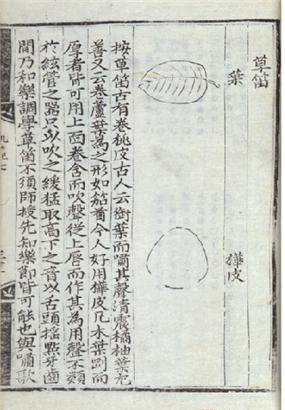 草笛
葉
樺皮
按草笛古有卷桃皮古人云銜樹葉而嘯其聲清震橘柚葉尤
善又云卷蘆葉爲之形如笳首今人好用樺皮凡木葉勁而
厚者皆可用上面卷含而吹聲從上唇而作其爲用聲不類
於絃管之器只以吹之緩猛取高下之音以舌頭搖點牙齒
間乃和樂調學草笛不須師授先知樂節皆可能也與嘯歌